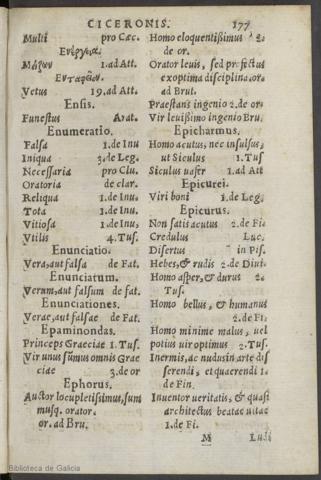 CICERONIS. 177
Multi pro Cæc.
Ενέργεια.
Μάγων 1.ad Att.
Vetus 19.ad Att.
Ensis.
Funestus Arat.
Enumeratio.
Falsa 1.de Inu
Iniqua 3.de Leg.
Necessaria pro Clu.
Oratoria de clar.
Reliqua 1.de Inu.
Tota 1.de Inu.
Vitiosa 1.de Inu,
Vtilis 4. Tus.
Enunciatio.
Vera, aut falsa de Fat.
Enunciatum.
Verum, aut falsum de fat.
Enunciationes.
Veræ, aut falsae de Fat.
Epaminondas.
Princeps Graeciae 1. Tus.
Vir unus summus omnis Grae
ciae 3.de or
Ephorus.
Auctor locupletissimus, sum
musq. orator.
or. ad Bru.
Homo eloquentissimus 2.
de or.
Orator leuis, sed profectus
ex optima disciplina.or.
ad Brut.
Praestans ingenio 2.de or.
Vir leuissimo ingenio Bru.
Epicharmus.
Homo acutus, nec insulsus,
ut Siculus 1. Tus
Siculus uafer 1.ad Att
Epicurei.
Viri boni 1. de Leg.
Epicurus.
Non satis acutus 2.de Fi.
Credulus Luc.
Disertus in Pis.
Hebes, & rudis 2.de Diui.
Homo asper, & durus 2.
Tus.
Homo bellus, & humanus
2.de Fi.
Homo minime malus, uel
potius uir optimus 2.Tus.
Inermis, ac nudus in arte dis
serendi, et quaerendi 1.
de Fin.
Inuentor ueritatis, & quasi
architectus beatae uitae
1.de Fi.
M Ludi
Biblioteca de Galicia